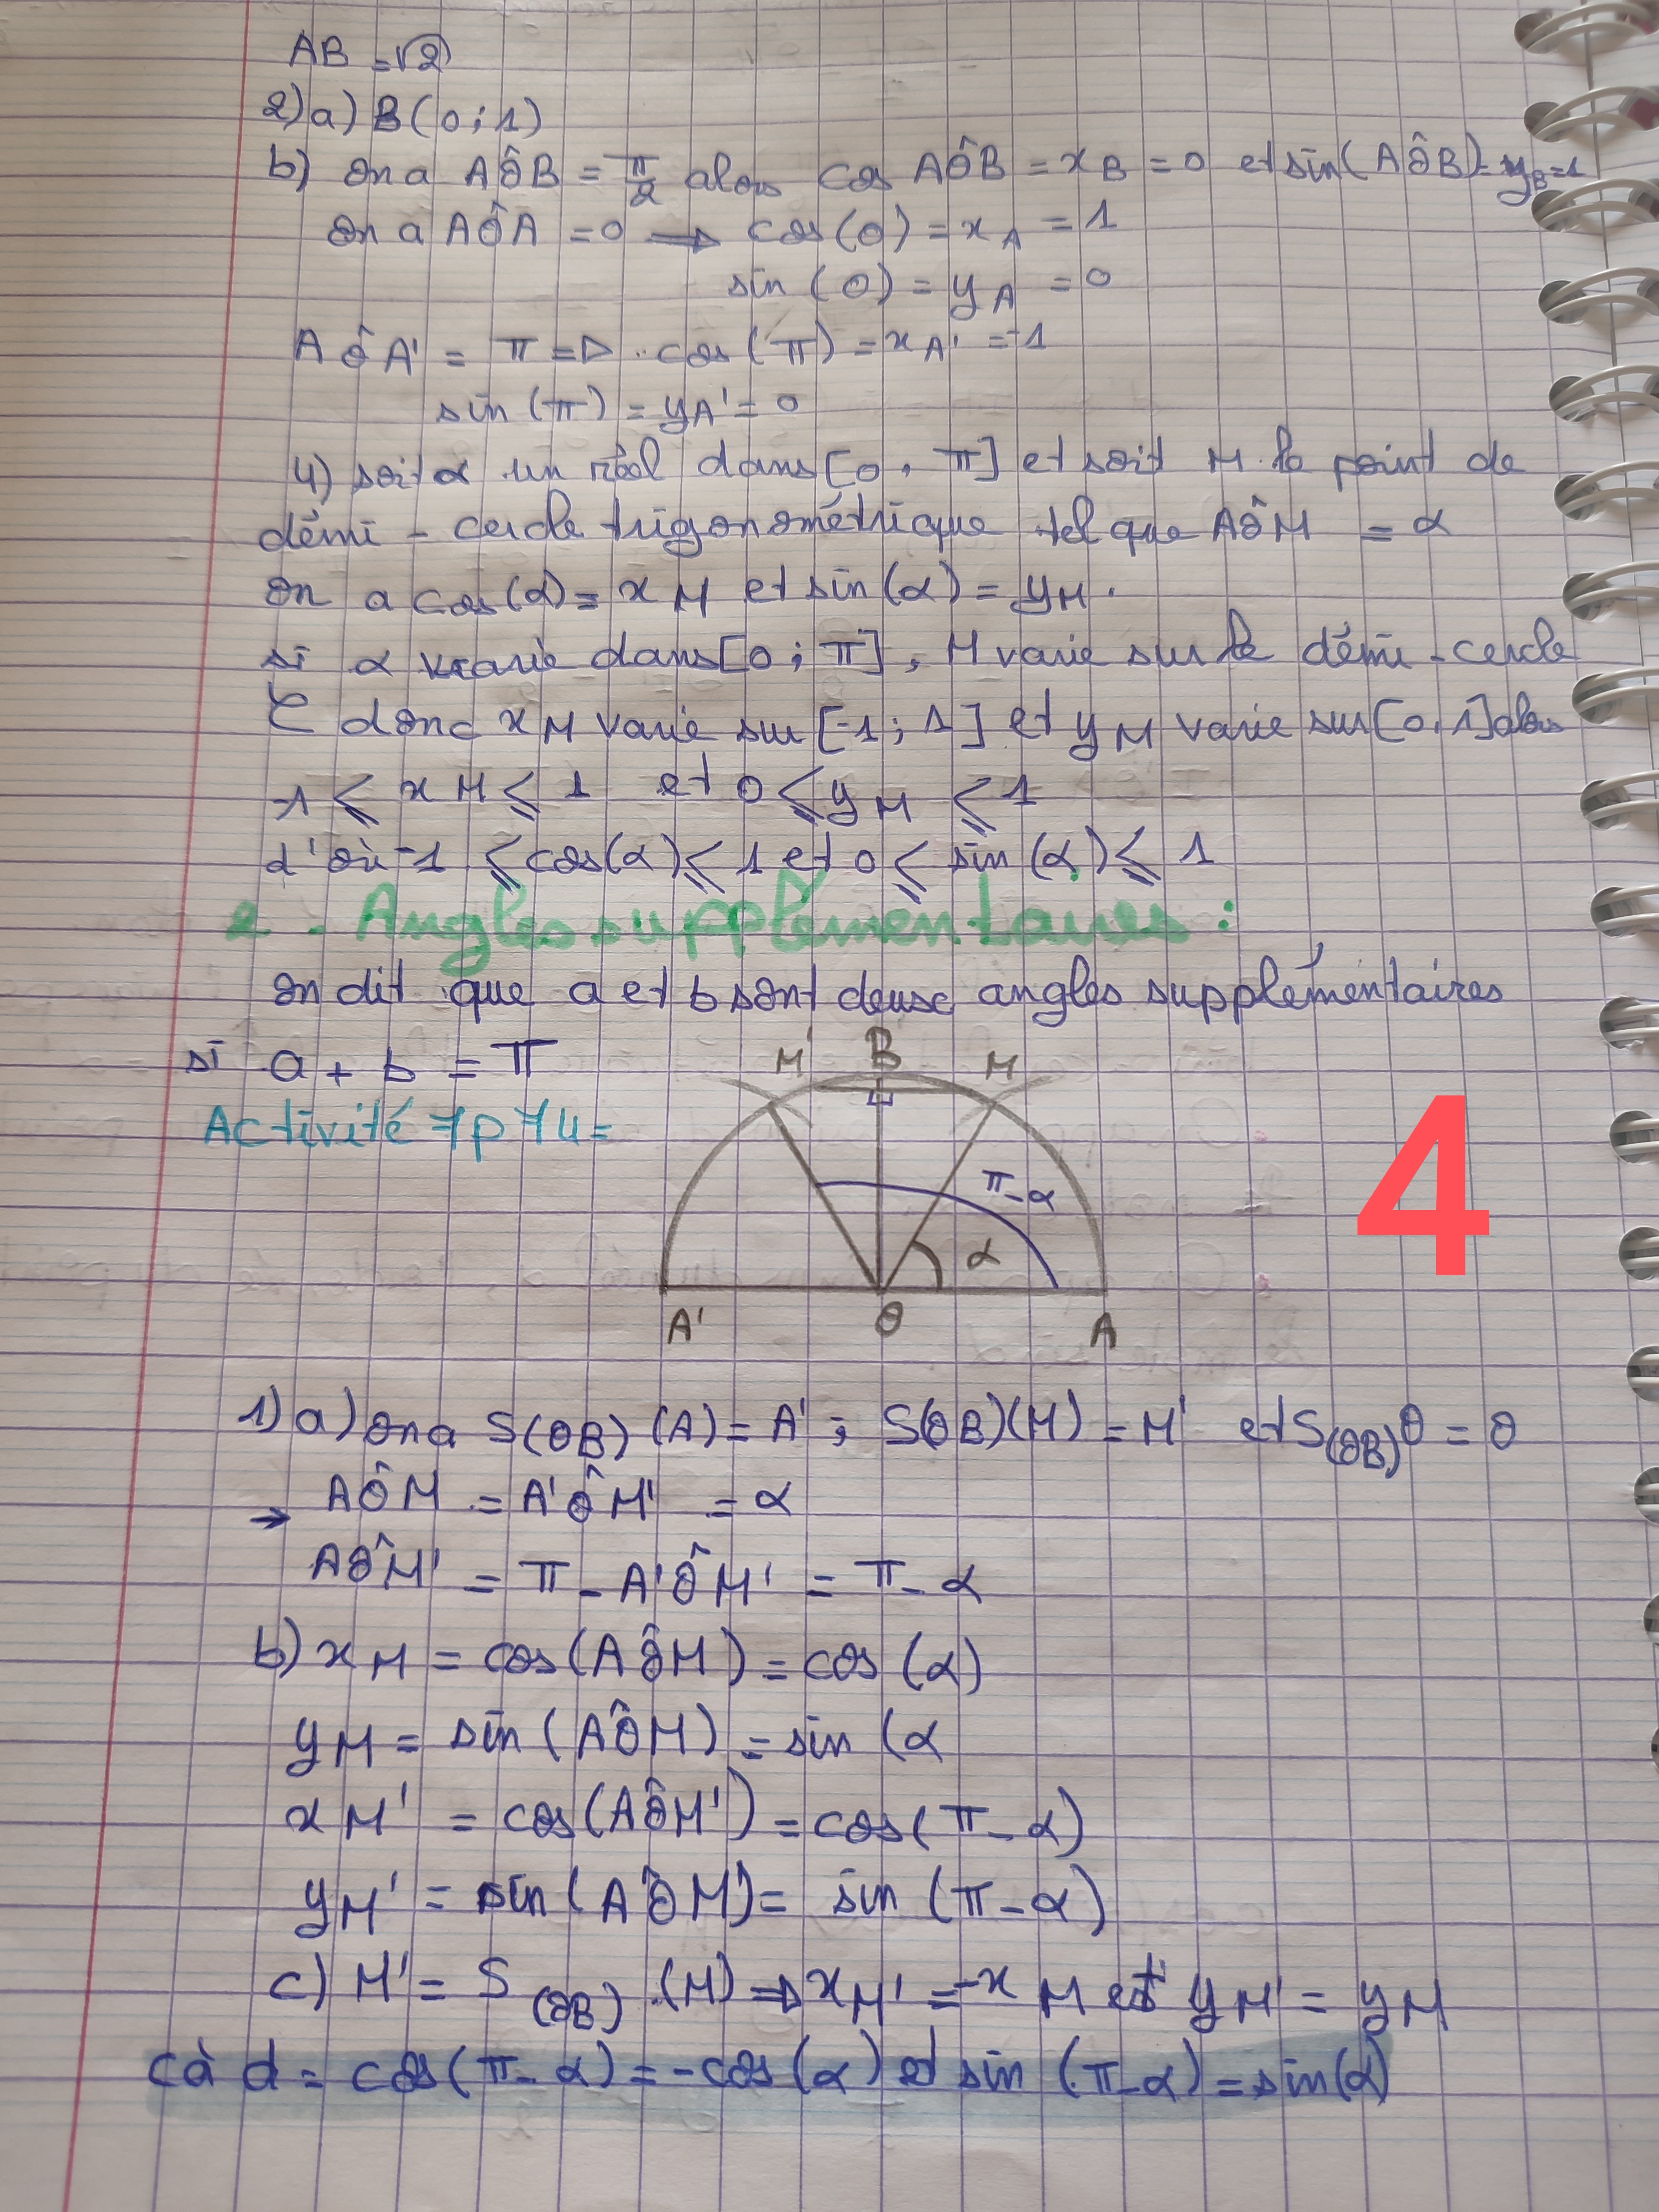 AB = √2
2) a) B(0 ; 1)
b) On a AÔB = π/2 alors cos AÔB = x_B = 0 et sin(AÔB) = y_B = 1
On a AÔA = 0 → cos(0) = x_A = 1
sin (0) = y_A = 0
AÔA' = π => cos(π) = x_A' = -1
sin (π) = y_A' = 0
4) soit α un réel dans [0, π] et soit M le point de
démi-cercle trigonométrique tel que AÔM = α
On a cos(α) = x_M et sin(α) = y_M.
si α varie dans [0 ; π], M varie sur le démi-cercle
C donc x_M varie sur [-1 ; 1] et y_M varie sur [0, 1] alors
-1 ⩽ x_M ⩽ 1 et 0 ⩽ y_M ⩽ 1
d'où -1 ⩽ cos(α) ⩽ 1 et 0 ⩽ sin(α) ⩽ 1
2 - Angles supplémentaires :
On dit que a et b sont deux angles supplémentaires
si a + b = π
M' B M
Activité 7p74 =
4
π - α
α
A' O A
1) a) On a S(OB) (A) = A' ; S(OB)(M) = M' et S(OB) O = O
→ AÔM = A'ÔM' = α
AÔM' = π - A'ÔM' = π - α
b) x_M = cos(AÔM) = cos(α)
y_M = sin(AÔM) = sin(α
x_M' = cos(AÔM') = cos(π - α)
y_M' = sin(AÔM') = sin(π - α)
c) M' = S(OB) (M) => x_M' = -x_M et y_M' = y_M
cà d = cos(π - α) = -cos(α) et sin(π - α) = sin(α)